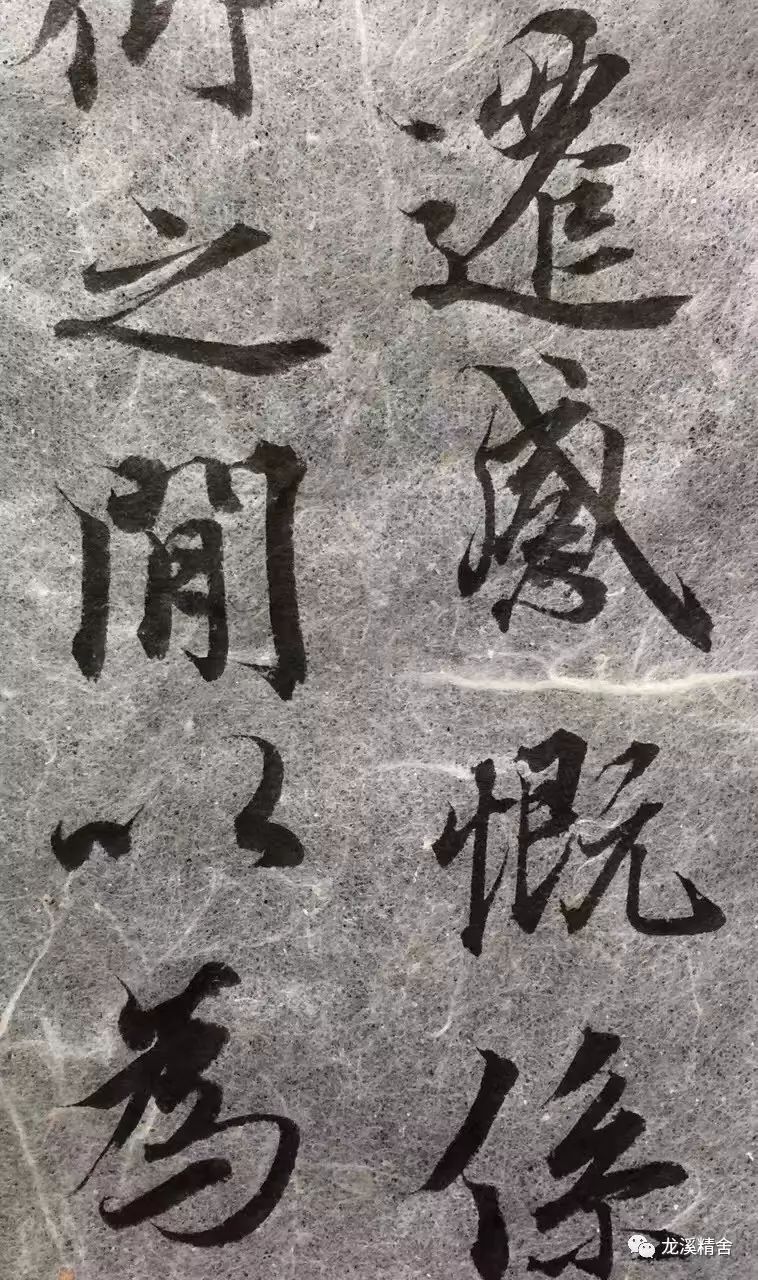 遷感慨係
仰之間以為
龙溪精舍